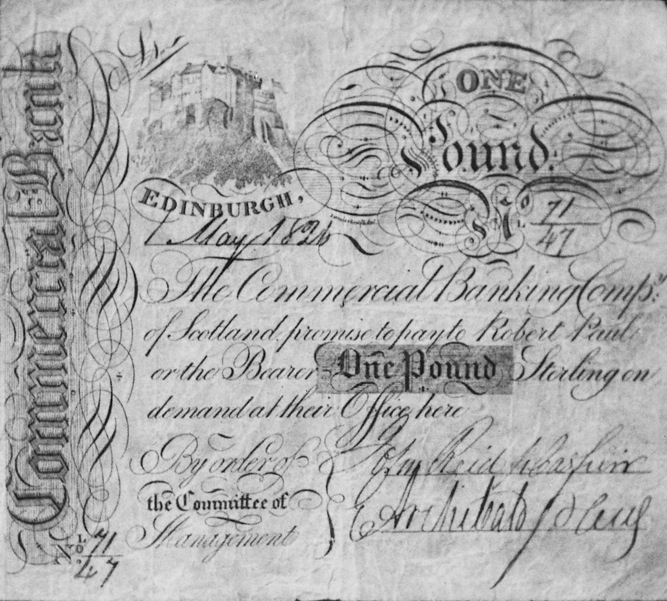 Commercial Bank
No
ONE
Pound.
EDINBURGH,
No 71
47
1 May 1826
The Commercial Banking Compy.
of Scotland, promise to pay to Robert Paul
or the Bearer - One Pound Sterling on
demand at their Office here
By order of
the Committee of
Management
No 71
47